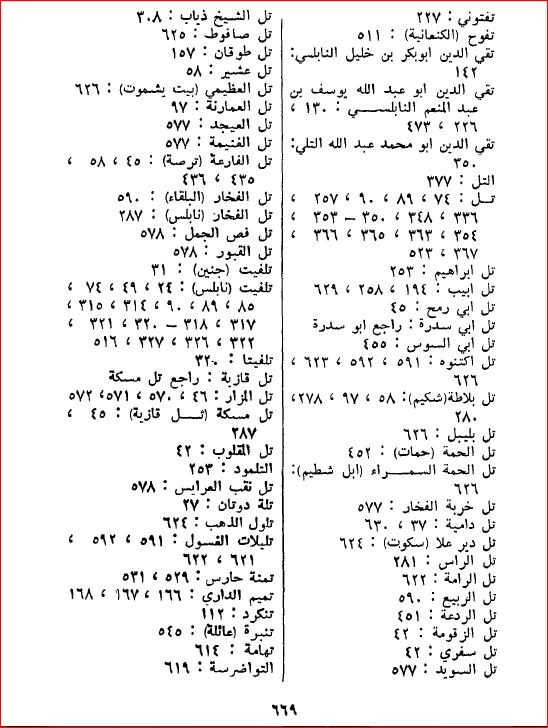 تفتوني : ٢٢٧
تفوح (الكنعانية) : ٥١١
تقي الدين ابوبكر بن خليل النابلسي :
١٤٢
تقي الدين ابو عبد الله يوسف بن
عبد المنعم النابلسـي : ١٣٠ ،
٢٢٦ ، ٤٧٣
تقي الدين ابو محمد عبد الله التلي :
٣٥٠
التل : ٣٧٧
تـل : ٧٤ ، ٨٩ ، ٩٠ ، ٢٥٧ ،
٣٣٦ ، ٣٤٨ ، ٣٥٠ – ٣٥٣ ،
٣٥٤ ، ٣٦٣ ، ٣٦٥ ، ٣٦٦ ،
٣٦٧ ، ٥٢٣
تل ابراهيم : ٢٥٣
تل ابيب : ١٩٤ ، ٢٥٨ ، ٦٢٩
تل ابي رمح : ٤٥
تل ابي سدرة : راجع ابو سدرة
تل ابي السوس : ٤٥٥
تل اكتنوه : ٥٩١ ، ٥٩٢ ، ٦٢٣ ،
٦٢٦
تل بلاطة (شكيم) : ٥٨ ، ٩٧ ، ٢٧٨ ،
٢٨٠
تل بليبل : ٦٢٦
تل الحمة (حمات) : ٤٥٢
تل الحمة السمـــراء (ابل شطيم) :
٦٢٦
تل خربة الفخار : ٥٧٧
تل دامية : ٣٧ ، ٦٣٠
تل دير علا (سكوت) : ٦٢٤
تل الراس : ٢٨١
تل الرامة : ٦٢٢
تل الربيع : ٥٩٠
تل الردعة : ٤٥١
تل الزقومة : ٤٢
تل سفري : ٤٢
تل السويد : ٥٧٧
تل الشيخ ذياب : ٣٠٨
تل صافوط : ٦٢٥
تل طوقان : ١٥٧
تل عشير : ٥٨
تل العظيمي (بيت يشموت) : ٦٢٦
تل العمارنة : ٩٧
تل العيجد : ٥٧٧
تل الغنيمة : ٥٧٧
تل الفارعة (ترصة) : ٤٥ ، ٥٨ ،
٤٣٥ ، ٤٣٦
تل الفخار (البلقاء) : ٥٩٠
تل الفخار (نابلس) : ٢٨٧
تل فص الجمل : ٥٧٨
تل القبور : ٥٧٨
تلفيت (جنين) : ٣١
تلفيت (نابلس) : ٢٤ ، ٤٩ ، ٧٤ ،
٨٥ ، ٨٩ ، ٩٠ ، ٣١٤ ، ٣١٥ ،
٣١٧ ، ٣١٨ – ٣٢٠ ، ٣٢١ ،
٣٢٢ ، ٣٢٦ ، ٣٢٧ ، ٥١٦
تلفيتا : ٣٢٠
تل قازية : راجع تل مسكة
تل المزار : ٤٦ ، ٥٧٠ ، ٥٧١ ، ٥٧٢
تل مسكة (تـل قازية) : ٤٥ ،
٢٨٧
تل المقلوب : ٤٢
التلمود : ٢٥٣
تل نقب العرايس : ٥٧٨
تلة دوثان : ٢٧
تلول الذهب : ٦٢٤
تليلات الغسول : ٥٩١ ، ٥٩٢ ،
٦٢١ ، ٦٢٢
تمنة حارس : ٥٢٩ ، ٥٣١
تميم الداري : ١٦٦ ، ١٦٧ ، ١٦٨
تنكرد : ١١٢
تنيرة (عائلة) : ٥٤٥
تهامة : ٦١٤
التواضرسة : ٦١٩
٦٦٩